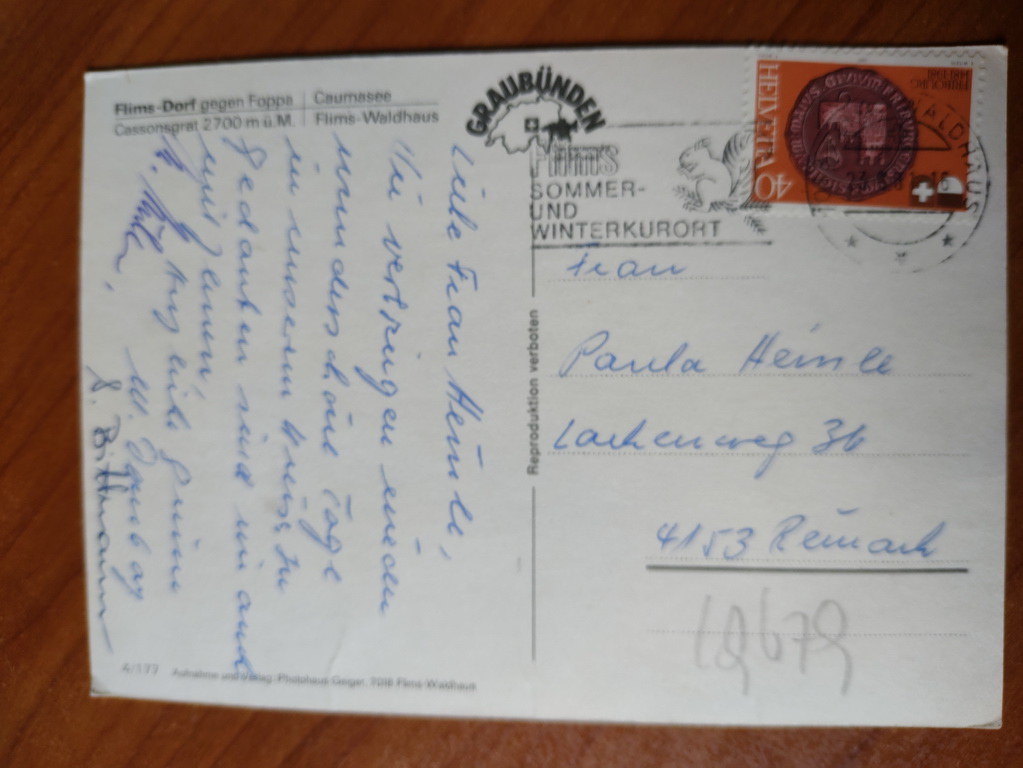 Flims-Dorf gegen Foppa
Cassonsgrat 2700 m ü.M.
Caumasee
Flims-Waldhaus
Liebe Frau Heinle,
Wir verbringen wieder
wunderschöne Tage
in unserem
Gedanken sind wir auch
mit Ihnen,
liebe Grüsse
Bittmann
4/177 Aufnahme und Verlag: Photohaus Geiger, 7018 Flims-Waldhaus
Reproduktion verboten
GRAUBÜNDEN
Flims
SOMMER-
UND
WINTERKURORT
HELVETIA
40
FRIBOURG
1481-1981
WALDHAUS
Frau
Paula Heinle
Lachenweg 36
4153 Reinach
19679